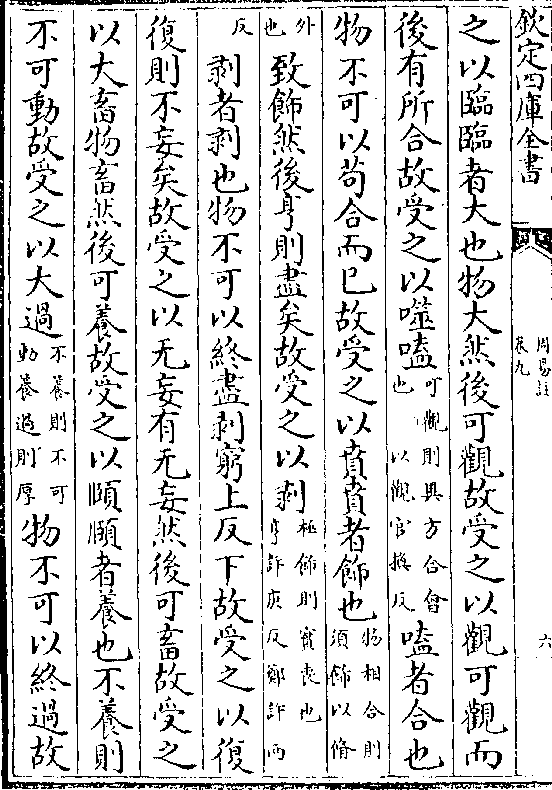 欽定四庫全書
周易註
卷九
六
之以臨臨者大也物大然後可觀故受之以觀可觀而
後有所合故受之以噬嗑可觀則異方合會也 以觀官換反嗑者合也
物不可以苟合而已故受之以賁賁者飾也物相合則須飾以脩
外也致飾然後亨則盡矣故受之以剝極飾則實喪也亨許庚反鄭許兩
反剝者剝也物不可以終盡剝窮上反下故受之以復
復則不妄矣故受之以无妄有无妄然後可畜故受之
以大畜物畜然後可養故受之以頤頤者養也不養則
不可動故受之以大過不養則不可動養過則厚物不可以終過故